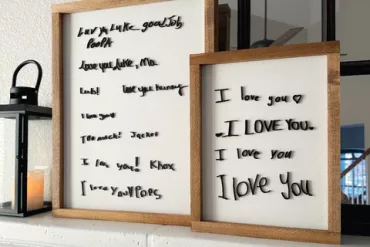 Luv ya Luke good Job
PooPA
Love you Luke, Ma.
love you hunny
I love you
Too much! Jackel
I love you! Knox
I love you Pops
I love you ♡
I LOVE YOU.
I love you
I love You